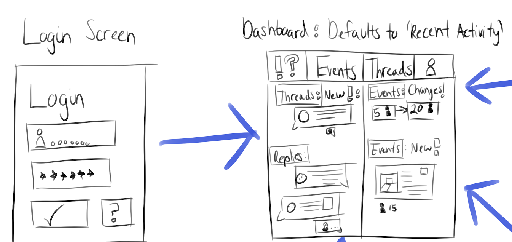 Login Screen
Dashboard: Defaults to 'Recent Activity'
Login
?
!? Events Threads
Threads: New!
Events: Changes!
5 → 20
Replies
Events: New!
15